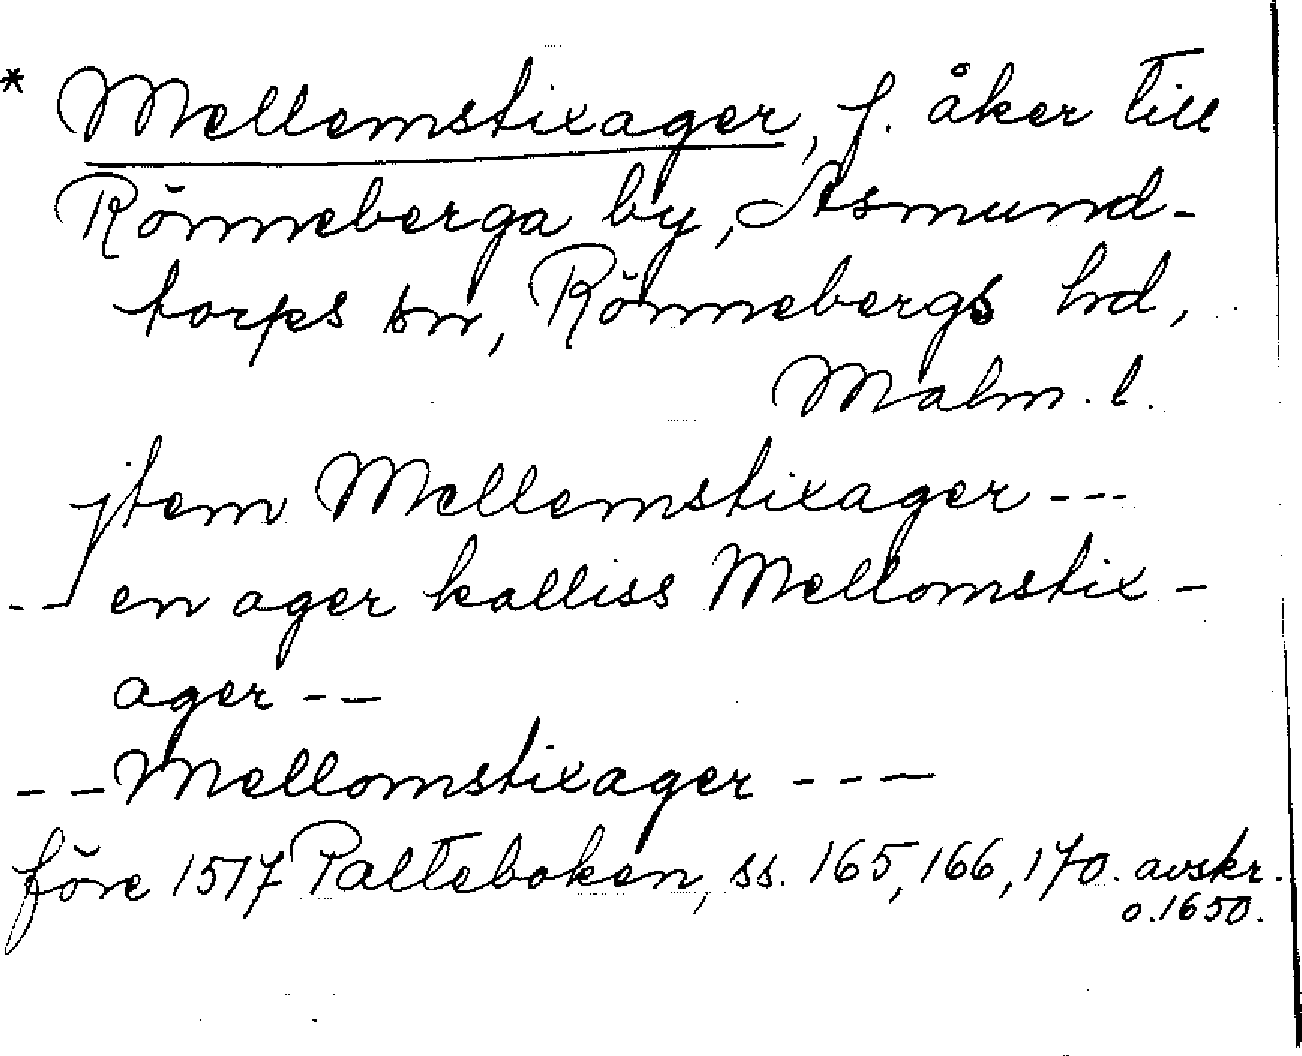 * Mellemstixager, f. åker till
Rönneberga by, Asmund-
torps sn, Rönnebergs hd,
Malm. l.
jtem Mellemstixager ---
-- en ager kalliss Mellomstix-
ager --
-- Mellomstixager ---
före 1517 Palteboken, ss. 165, 166, 170. avskr.
o. 1650.